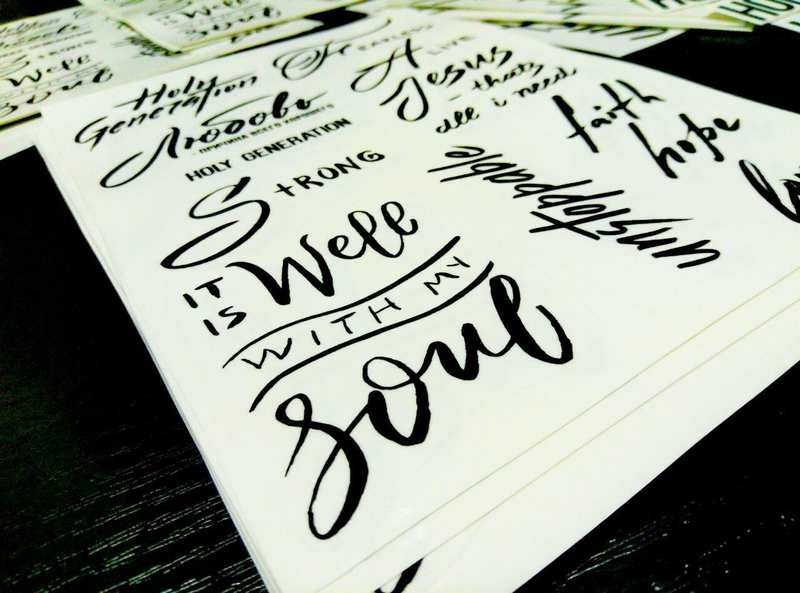 Holy
Generation
Любовь
HOLY GENERATION
STRONG
IT IS Well
WITH MY
Soul
ALIVE
Jesus
- thats
all i need
faith
hope
unstoppable
Strong
Well
Soul